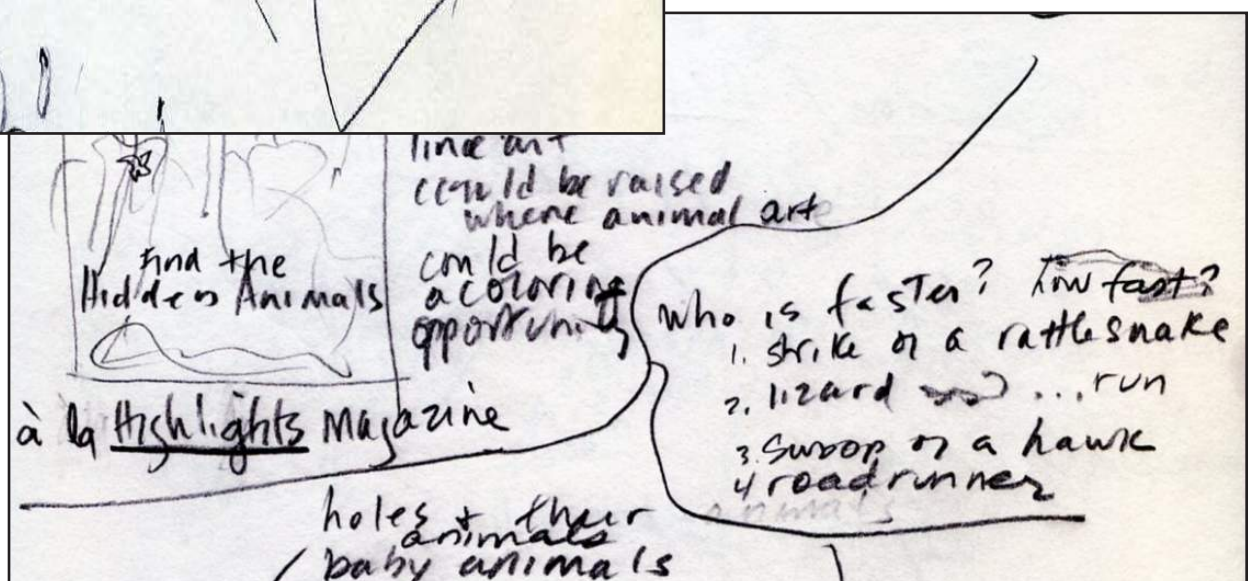 line art
could be raised
where animal art
could be
a coloring
opportunity
Find the
Hidden Animals
à la Highlights Magazine
who is faster? How fast?
1. strike of a rattlesnake
2. lizard ... run
3. swoop of a hawk
4 roadrunner
animals
holes + their
animals
baby animals